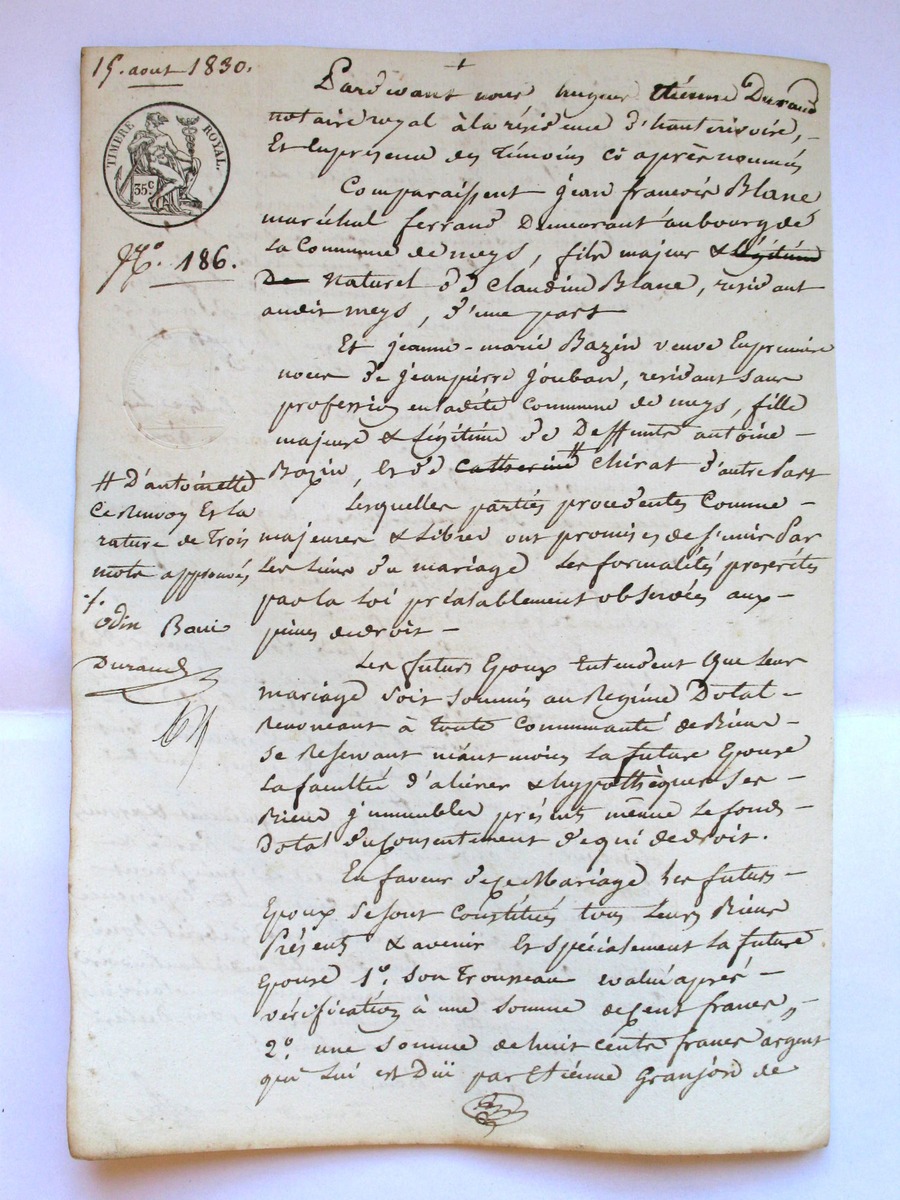 15. aout 1830.
TIMBRE ROYAL.
35 c.
N.o 186.
Pardevant nous hugues Etienne Durand
notaire royal à la résidence d'hauterivoire,
Et Enprésence des témoins ci après nommés
Comparaissent jean francois Blanc
maréchal ferrand Demeurant aubourg de
la Commune de meys, fils majeur & légitime
De Naturel de Claudine Blanc, residant
audit meys, d'une part
Et jeanne-marie Bazin veuve Enpremière
noces de jeanpierre Jouban, residant sans
profession enladite Commune de meys, fille
majeure & légitime de Deffunts antoine
Bazin, & de Catherine # Chirat d'autre Part
Lesquelles parties procedentes Comme
majeures & Libres ont promis de s'unir Par
Les Liens du mariage Les formalités prescrites
par la Loi préalablement observées aux
peines dedroit
Les futurs Epoux Entendent Que leur
mariage soit soumis au Regime Dotal
Renonceant à toute Communauté deBiens
se Reservant néant moins La future Epouse
La faculté d'aliéner & hypothèquer Ses
Biens jmmeubles présents même Le fonds
Dotal du Consentement de qui dedroit.
En faveur de ce Mariage les futurs
Epoux se sont Constitués tous Leurs Biens
Présents & avenir Et spécialement La future
Epouse 1.o son Trousseau evalué après
vérification à une somme de Cent francs,
2.o une somme de huit cents francs argent
qui lui est Düe par Etienne Granjon de
# D'antoinette
Ce Renvoy Et La
rature de Trois
mots approuvés
odin Bani
Durand